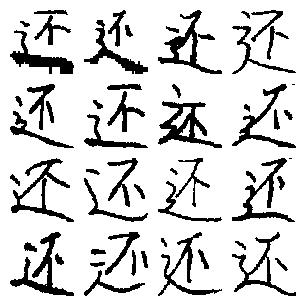 还还还还
还还还还
还还还还
还还还还